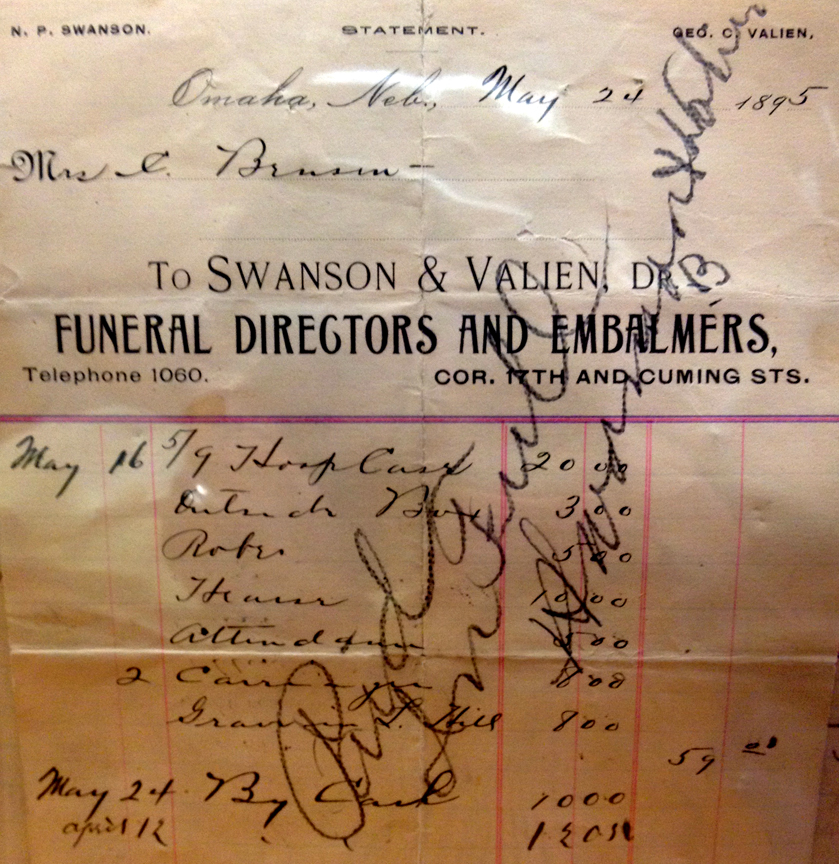 N. P. SWANSON. STATEMENT. GEO. C. VALIEN,
Omaha, Neb., May 24 1895
Mrs C. Brunsin
TO SWANSON & VALIEN, DR.
FUNERAL DIRECTORS AND EMBALMERS,
Telephone 1060. COR. 17TH AND CUMING STS.
May 16 5/9 Casket 20 00
Outside Box 3 00
Robe 5 00
Hearse 10 00
Attendance 5 00
2 Carriages 8 00
Grave L. Hill 8 00
59 00
May 24 By Cash 10 00
april 12
Paid in Full
Swanson & Valien